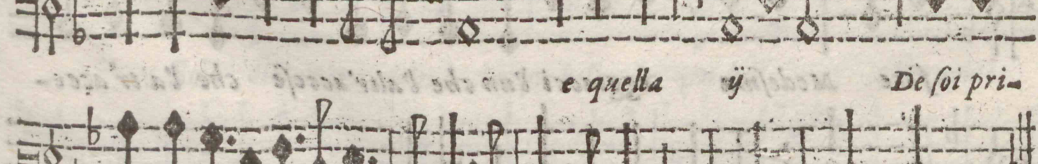 e quella ÿ De ſoi pri-